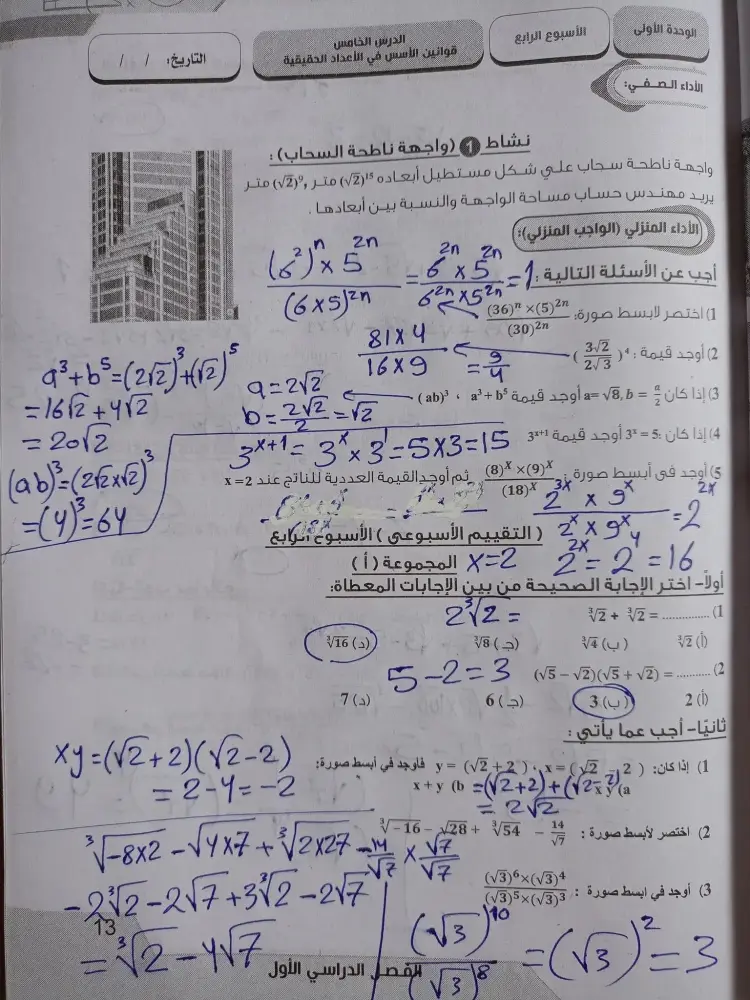 الوحدة الأولى
الأسبوع الرابع
الدرس الخامس
قوانين الأسس في الأعداد الحقيقية
التاريخ: / /
الأداء الصفي:
نشاط 1 (واجهة ناطحة السحاب):
واجهة ناطحة سحاب علي شكل مستطيل أبعاده (√2)¹⁵ متر , (√2)⁹ متر
يريد مهندس حساب مساحة الواجهة والنسبة بين أبعادها .
الأداء المنزلي (الواجب المنزلي):
(6²)ⁿ × 5²ⁿ / (6×5)²ⁿ = 6²ⁿ × 5²ⁿ / 6²ⁿ × 5²ⁿ = 1
أجب عن الأسئلة التالية :
1) اختصر لأبسط صورة: (36)ⁿ ×(5)²ⁿ / (30)²ⁿ
2) أوجد قيمة : (3√2 / 2√3)⁴
81×4 / 16×9 = 9/4
3) إذا كان a= √8, b = a/2 أوجد قيمة a³ + b⁵ ، (ab)³
a = 2√2
b = 2√2/2 = √2
a³ + b⁵ = (2√2)³ + (√2)⁵
= 16√2 + 4√2
= 20√2
(ab)³ = (2√2×√2)³
= (4)³ = 64
4) إذا كان : 3ˣ = 5 أوجد قيمة 3ˣ⁺¹
3ˣ⁺¹ = 3ˣ × 3¹ = 5×3 = 15
5) أوجد في أبسط صورة : (8)ˣ ×(9)ˣ / (18)ˣ ثم أوجد القيمة العددية للناتج عند x =2
2³ˣ × 9ˣ / 2ˣ × 9ˣ = 2²ˣ
x=2 2²ˣ = 2⁴ = 16
( التقييم الأسبوعي ) الأسبوع الرابع
المجموعة ( أ )
أولاً- اختر الإجابة الصحيحة من بين الإجابات المعطاة:
1) ∛2 + ∛2 = ..............
2∛2 =
(أ) ∛2 (ب) ∛4 (جـ) ∛8 (د) ∛16
2) (√5 − √2)(√5 + √2) = ..........
5 − 2 = 3
(أ) 2 (ب) 3 (جـ) 6 (د) 7
ثانيًا- أجب عما يأتي :
1) إذا كان: x = (√2 − 2) ، y = (√2 + 2) فاوجد في أبسط صورة:
a) x y b) x + y
= (√2+2) + (√2−2)
= 2√2
xy = (√2+2)(√2−2)
= 2 − 4 = −2
2) اختصر لأبسط صورة : ∛−16 − √28 + ∛54 − 14/√7
∛−8×2 − √4×7 + ∛2×27 − 14/√7 × √7/√7
−2∛2 − 2√7 + 3∛2 − 2√7
= ∛2 − 4√7
3) أوجد في ابسط صورة : (√3)⁶×(√3)⁴ / (√3)⁵×(√3)³
(√3)¹⁰ / (√3)⁸ = (√3)² = 3
13
الفصل الدراسي الأول